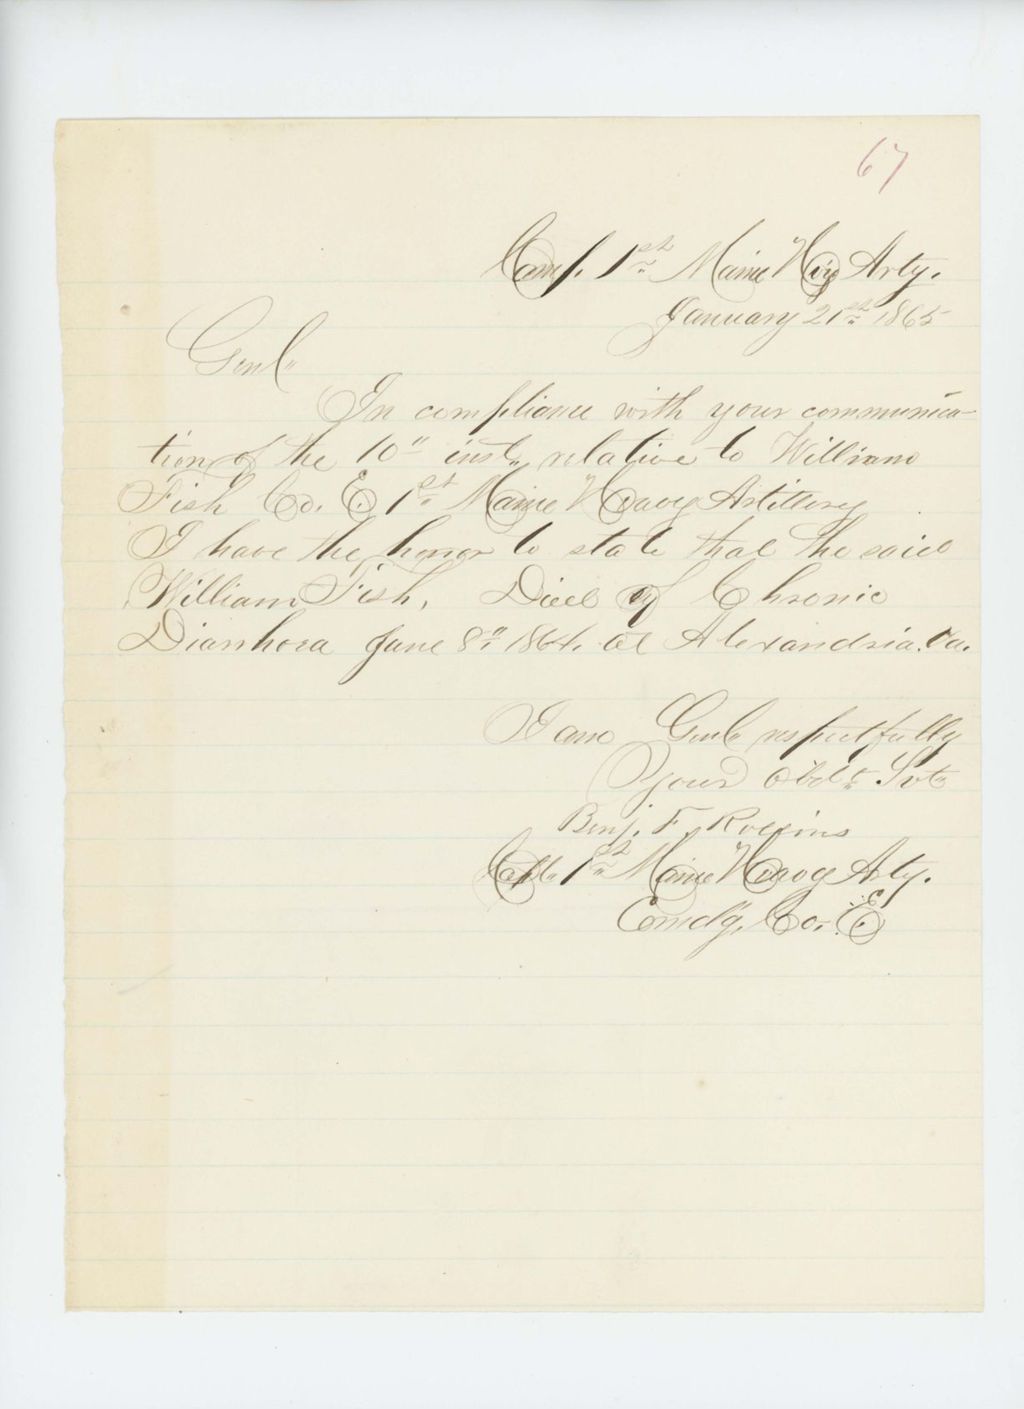 67
Camp. 1st Maine Hvy Arty.
January 21st 1865
Genl"
In compliance with your communica-
tion of the 10" inst, relative to William
Fish Co. E. 1st Maine Heavy Artillery
I have the honor to state that the said
William Fish, Died of Chronic
Diarrhoea June 8" 1864. at Alexandria. Va.
I am Genl respectfully
Your Obdt Svt
Benj. F. Rollins
Capt. 1st Maine Heavy Arty.
Comdg. Co. E